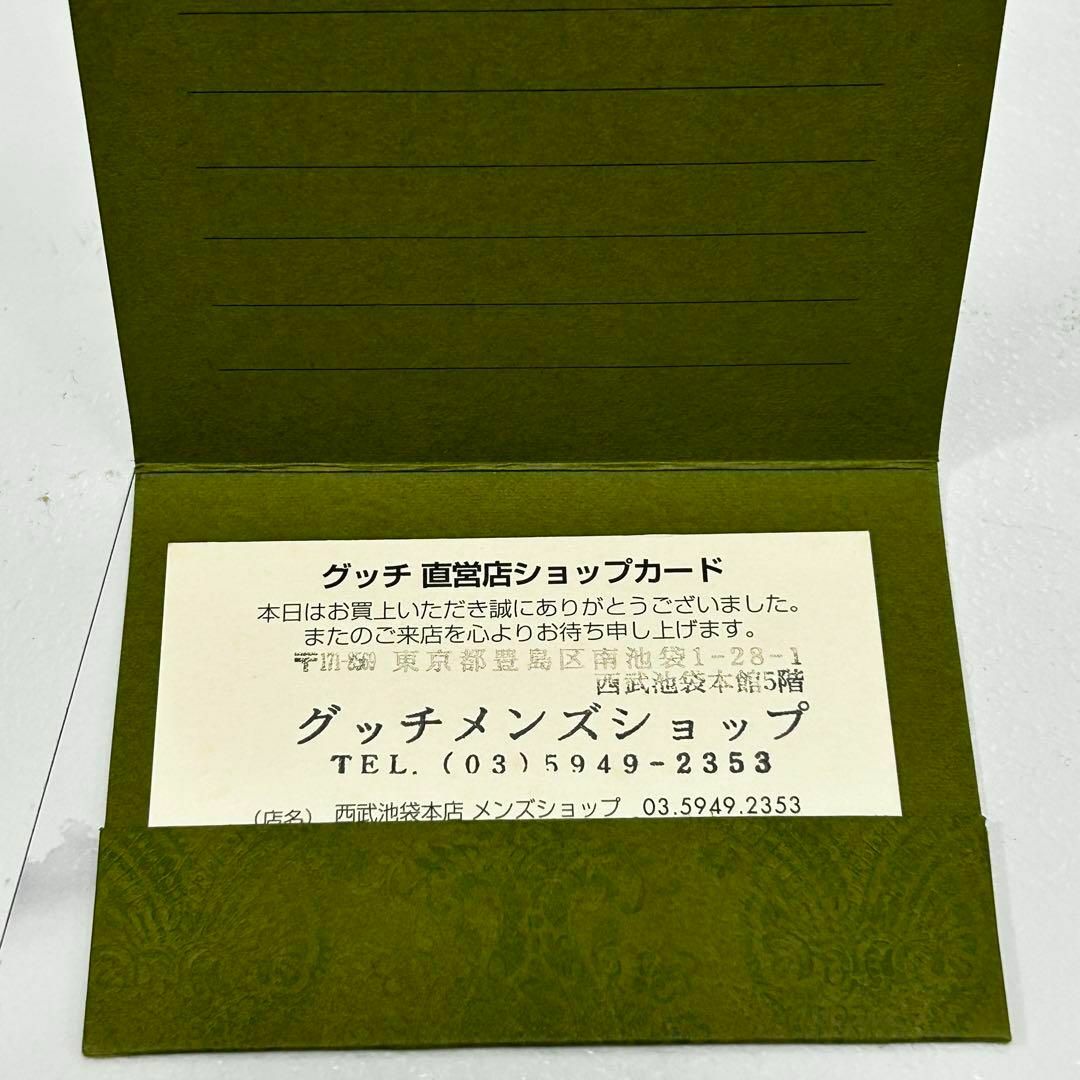 グッチ 直営店ショップカード
本日はお買上いただき誠にありがとうございました。
またのご来店を心よりお待ち申し上げます。
〒171-8569 東京都豊島区南池袋1-28-1
西武池袋本館5階
グッチメンズショップ
TEL. (03)5949-2353
(店名) 西武池袋本店 メンズショップ 03.5949.2353